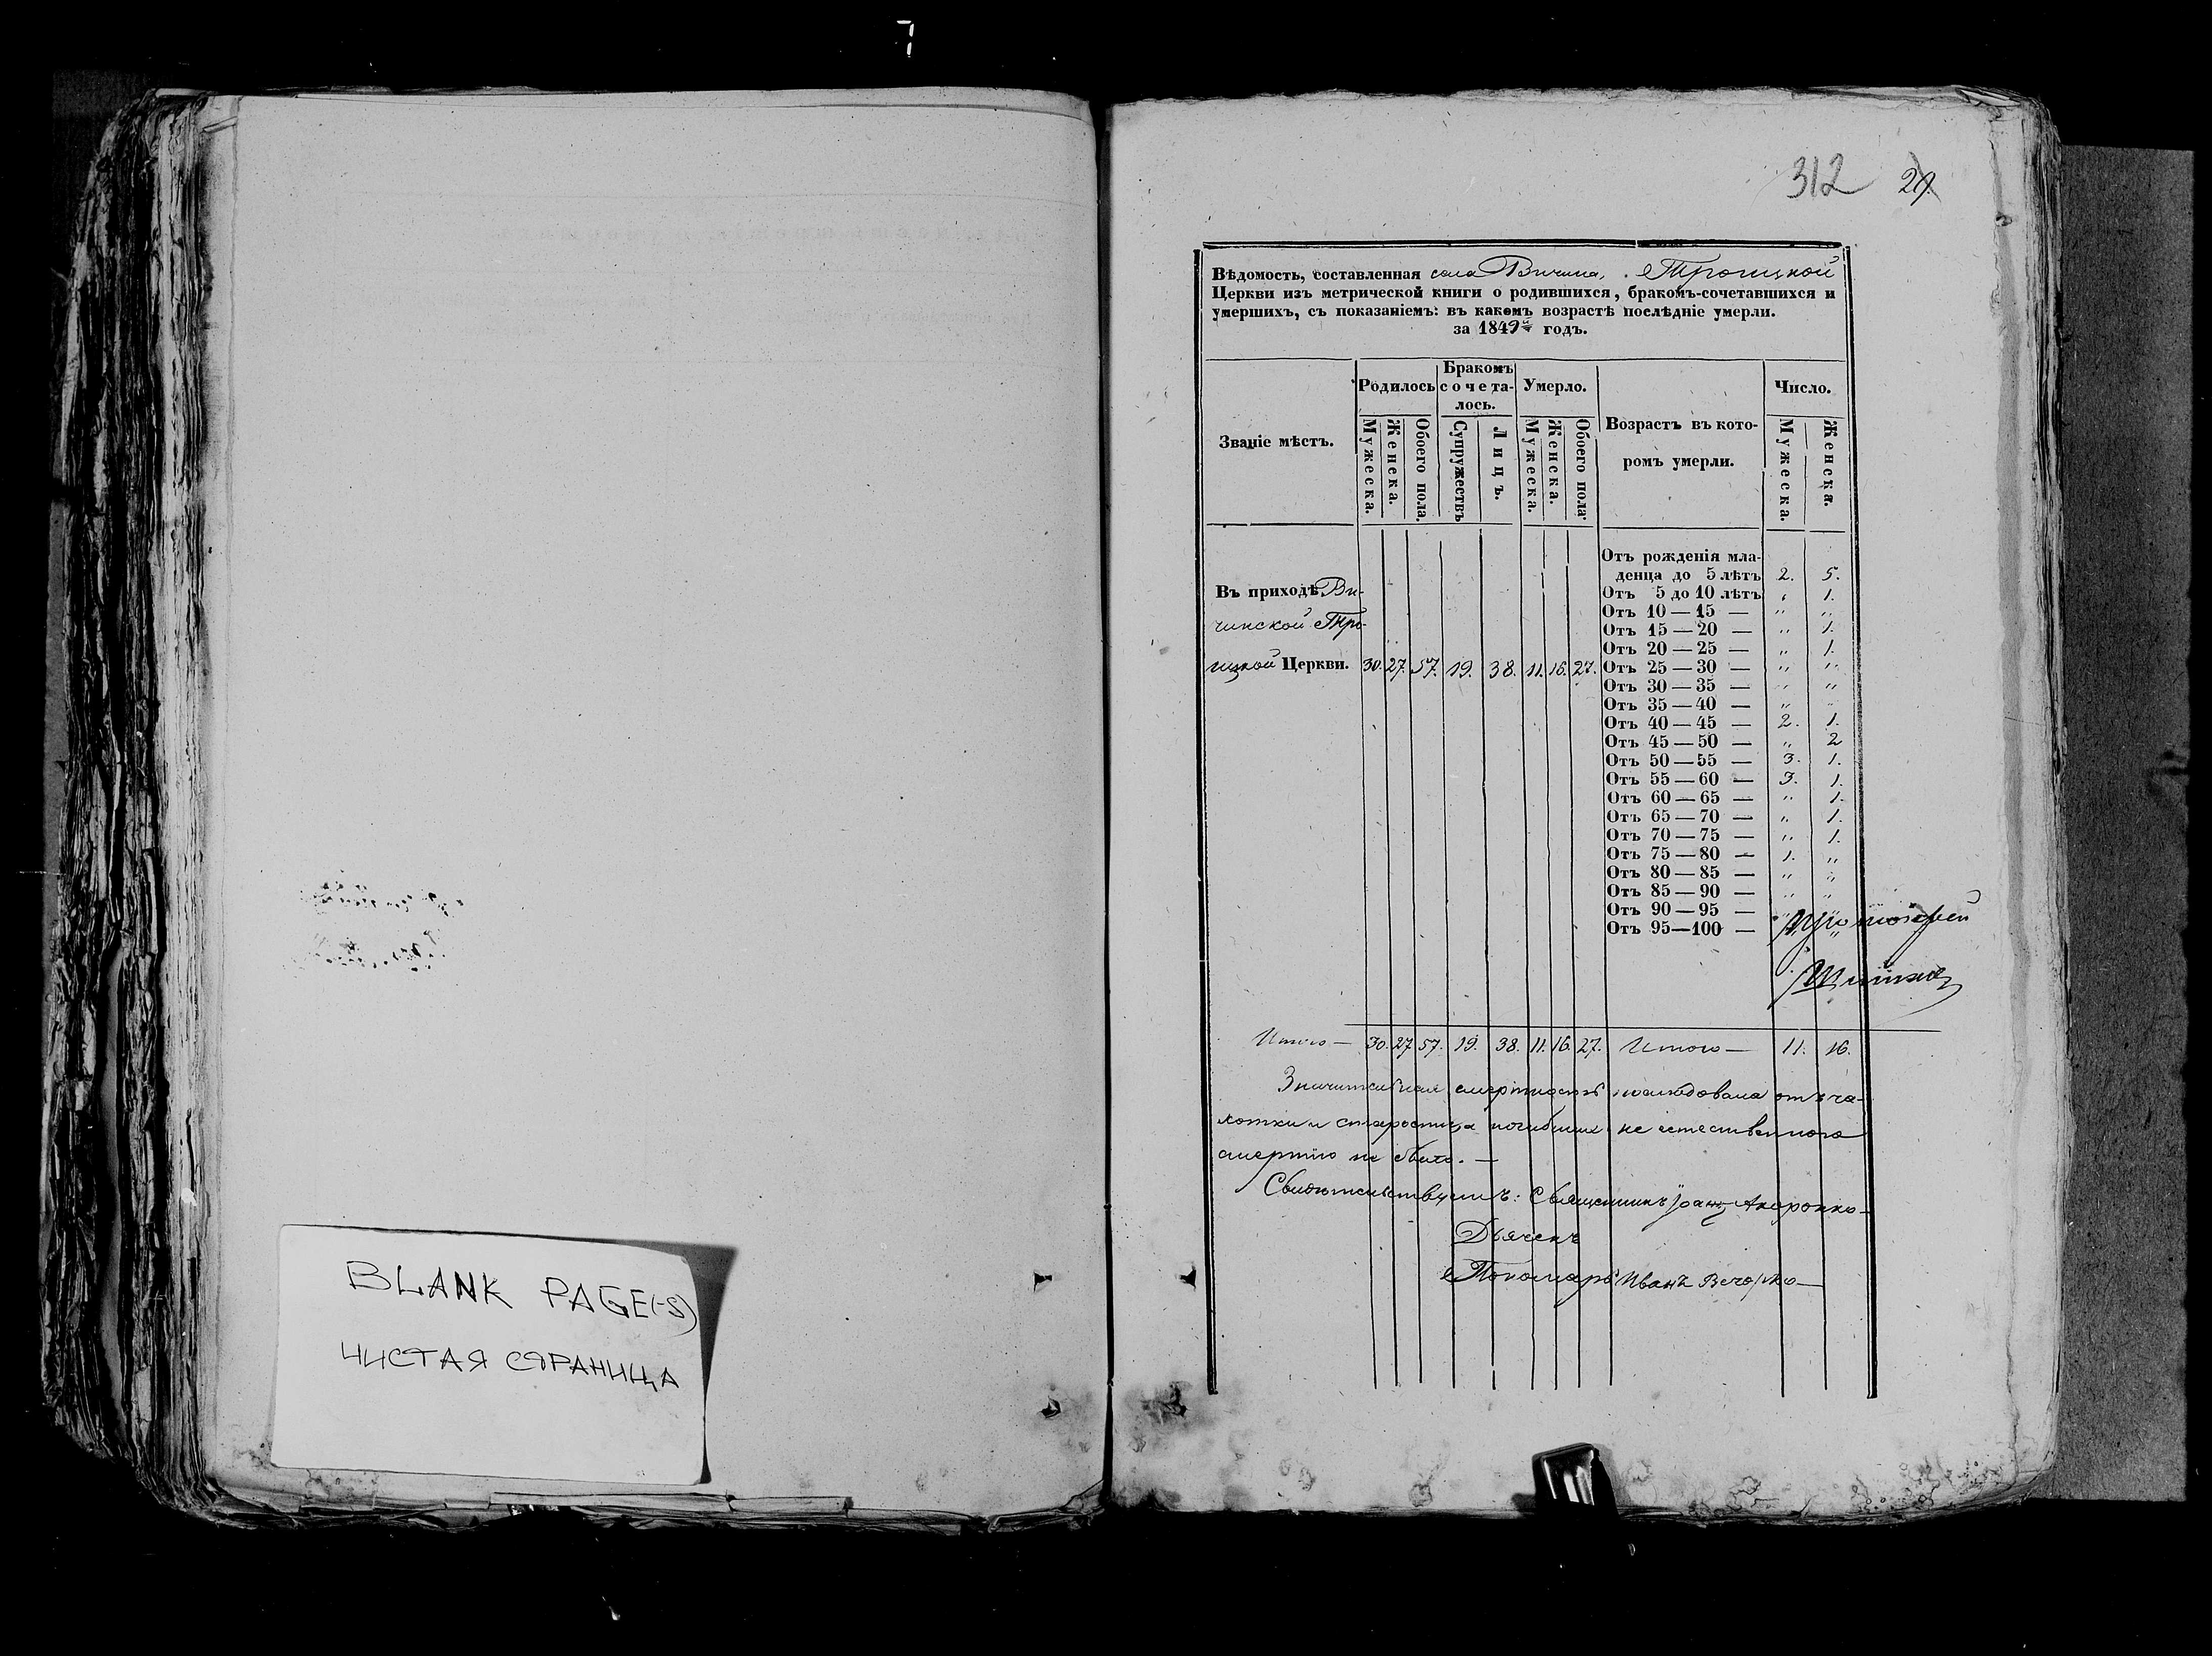 7
312 29.
Вѣдомость, составленная села Вичина, Троицкой
Церкви изъ метрической книги о родившихся, бракомъ-сочетавшихся и
умершихъ, съ показаніемъ: въ какомъ возрастѣ послѣдніе умерли.
за 1849й годъ.
Званіе мѣстъ.
Родилось
Мужеска.
Женска.
Обоего пола.
Бракомъ
сочета-
лось.
Супружествъ
Лицъ.
Умерло.
Мужеска.
Женска.
Обоего пола.
Возрастъ въ кото-
ромъ умерли.
Число.
Мужеска.
Женска.
Въ приходѣ Ви-
чинской Тро-
ицкой Церкви. 30. 27. 57. 19. 38. 11. 16. 27.
Отъ рожденія мла-
денца до 5 лѣтъ 2. 5.
Отъ 5 до 10 лѣтъ „ 1.
Отъ 10 — 15 — „ „
Отъ 15 — 20 — „ 1.
Отъ 20 — 25 — „ 1.
Отъ 25 — 30 — „ „
Отъ 30 — 35 — „ „
Отъ 35 — 40 — „ „
Отъ 40 — 45 — 2. 1.
Отъ 45 — 50 — „ 2
Отъ 50 — 55 — 3. 1.
Отъ 55 — 60 — 3. 1.
Отъ 60 — 65 — „ 1.
Отъ 65 — 70 — „ 1.
Отъ 70 — 75 — „ 1.
Отъ 75 — 80 — 1. „
Отъ 80 — 85 — „ „
Отъ 85 — 90 — „ „
Отъ 90 — 95 — „ „
Отъ 95—100 — „ „
Итого — 30. 27 57. 19. 38. 11. 16. 27. Итого — 11. 16.
Значительная смертность последовала отъ ча-
хотки и старости, а погибших не естественною
смертію не было. —
Свидѣтельствуемъ: Священникъ Іоаннъ
Дьячекъ
Пономарь Иванъ Вечорко
BLANK PAGE(-S)
ЧИСТАЯ СТРАНИЦА